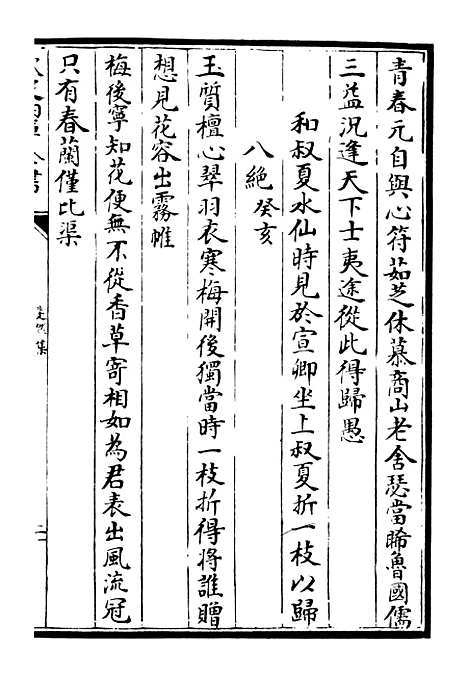 青春元自與心符茹芝休慕商山老舍瑟當睎魯國儒
三益況逢天下士夷途從此得歸愚
和叔夏水仙時見於宣卿坐上叔夏折一枝以歸
八絶癸亥
玉質檀心翠羽衣寒梅開後獨當時一枝折得將誰贈
想見花容出霧帷
梅後寧知花便無不從香草寄相如為君表出風流冠
只有春蘭僅比渠